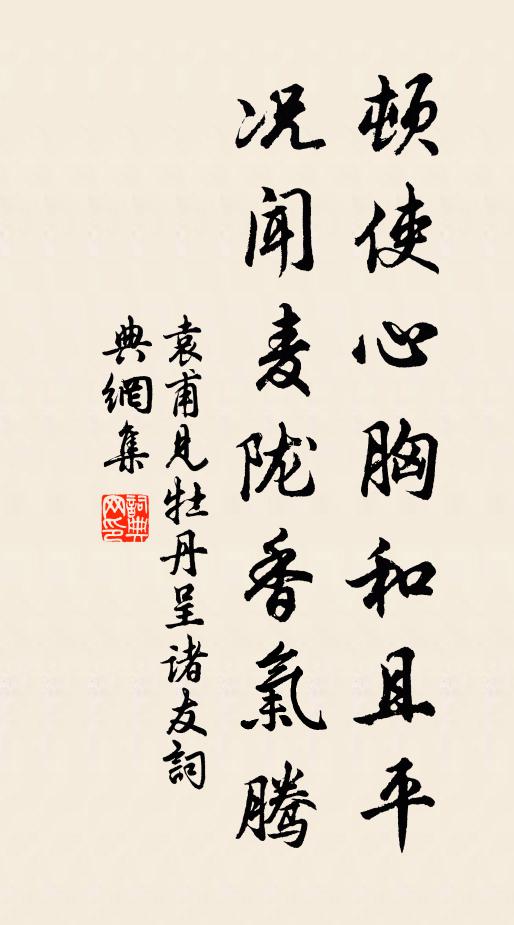 顿使心胸和且平
况闻麦陇香氣腾
袁甫见牡丹呈诸友詞
典網集
詞典网印